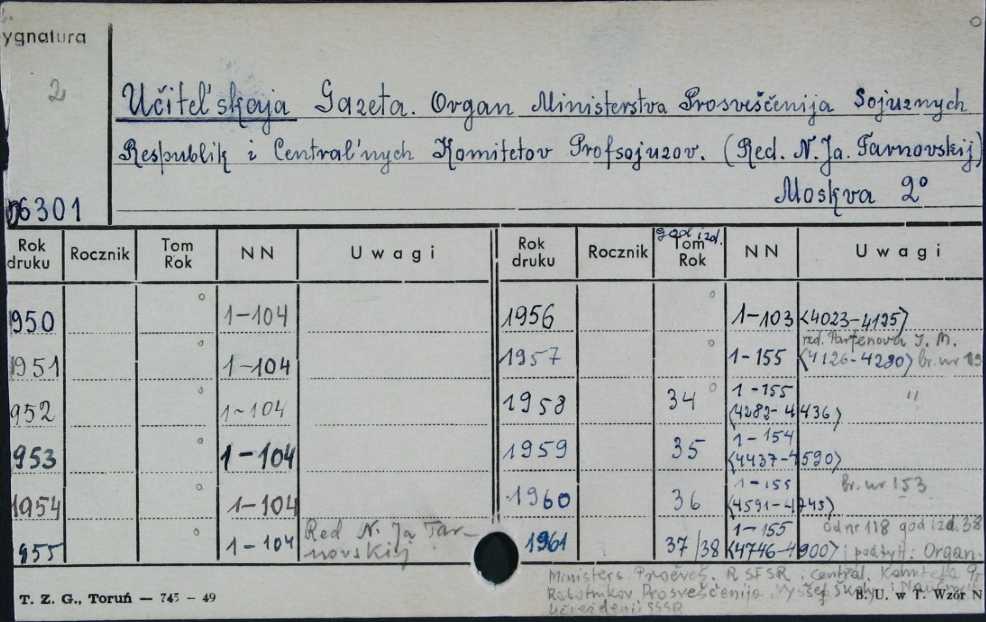 ygnatura
2
Učitel'skaja Gazeta. Organ Ministerstva Prosveščenija Sojuznych
Respublik i Central'nych Komitetov Profsojuzov. (Red. N. Ja. Tarnovskij)
Moskva 2°
6301
Rok druku Rocznik Tom Rok NN Uwagi Rok druku Rocznik god izd. Tom Rok NN Uwagi
1950 1-104 1956 1-103 <4023-4125>
red. Parfenova I. M.
1951 1-104 1957 1-155 <4126-4280> br. nr
952 1-104 1958 34 1-155 <4282-4436> "
953 1-104 1959 35 1-154 <4437-4590>
1954 1-104 1960 36 1-155 <4591-4745> br. nr 153
955 1-104 Red N. Ja Tarnovskij 1961 37/38 1-155 <4746-4900> od nr 118 god izd. 38 i podtyt: Organ
Ministers. Prosveš. RSFSR, Central. Komiteta
Rabotnikov Prosveščenija, Vysšej Školy i
Učreždenij SSSR
T. Z. G., Toruń — 745 - 49 B. U. w T. Wzór N